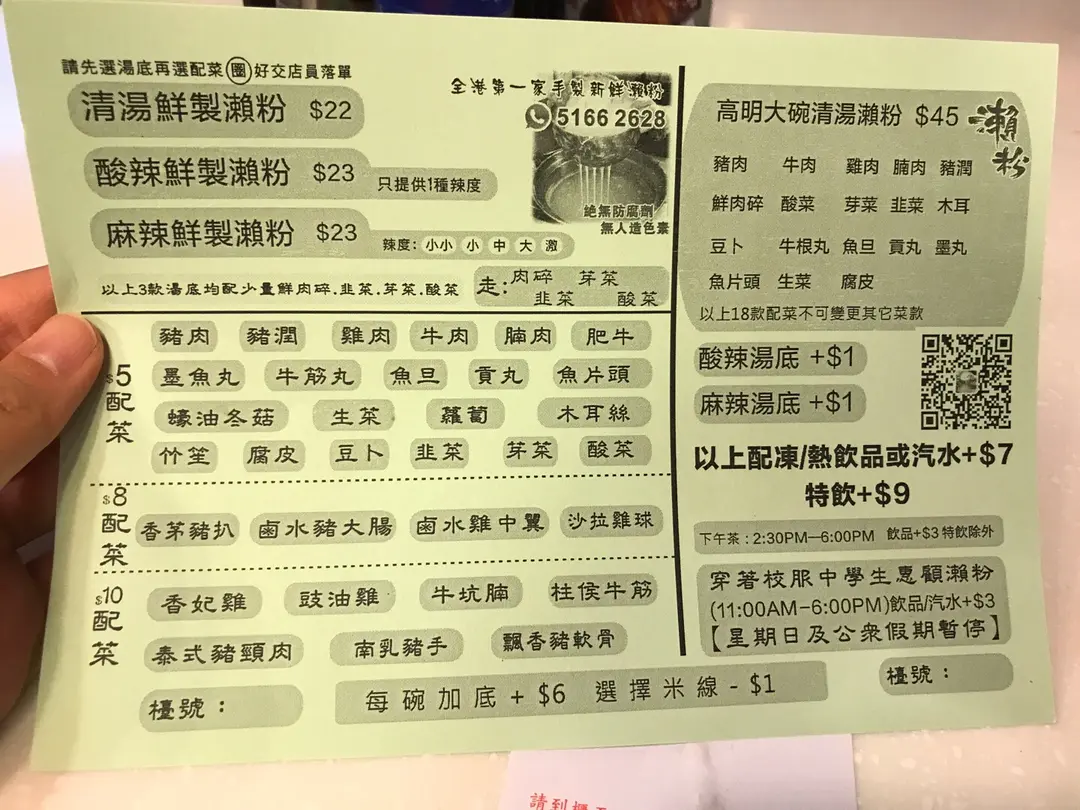 請先選湯底再選配菜圈好交店員落單
清湯鮮製瀨粉 $22
酸辣鮮製瀨粉 $23 只提供1種辣度
麻辣鮮製瀨粉 $23 辣度: 小小 小 中 大 激
以上3款湯底均配少量鮮肉碎.韭菜.芽菜.酸菜
走: 肉碎 芽菜
韭菜 酸菜
全港第一家手製新鮮瀨粉
5166 2628
絶無防腐劑
無人造色素
$5配菜
豬肉 豬潤 雞肉 牛肉 腩肉 肥牛
墨魚丸 牛筋丸 魚旦 貢丸 魚片頭
蠔油冬菇 生菜 蘿蔔 木耳絲
竹笙 腐皮 豆卜 韭菜 芽菜 酸菜
$8配菜
香茅豬扒 鹵水豬大腸 鹵水雞中翼 沙拉雞球
$10配菜
香妃雞 豉油雞 牛坑腩 柱侯牛筋
泰式豬頸肉 南乳豬手 飄香豬軟骨
檯號：
每碗加底 + $6 選擇米線 - $1
高明大碗清湯瀨粉 $45
瀨松
豬肉 牛肉 雞肉 腩肉 豬潤
鮮肉碎 酸菜 芽菜 韭菜 木耳
豆卜 牛根丸 魚旦 貢丸 墨丸
魚片頭 生菜 腐皮
以上18款配菜不可變更其它菜款
酸辣湯底 +$1
麻辣湯底 +$1
以上配凍/熱飲品或汽水+$7
特飲+$9
下午茶：2:30PM—6:00PM 飲品+$3 特飲除外
穿著校服中學生惠顧瀨粉
(11:00AM-6:00PM)飲品/汽水+$3
【星期日及公衆假期暫停】
檯號：
請到櫃